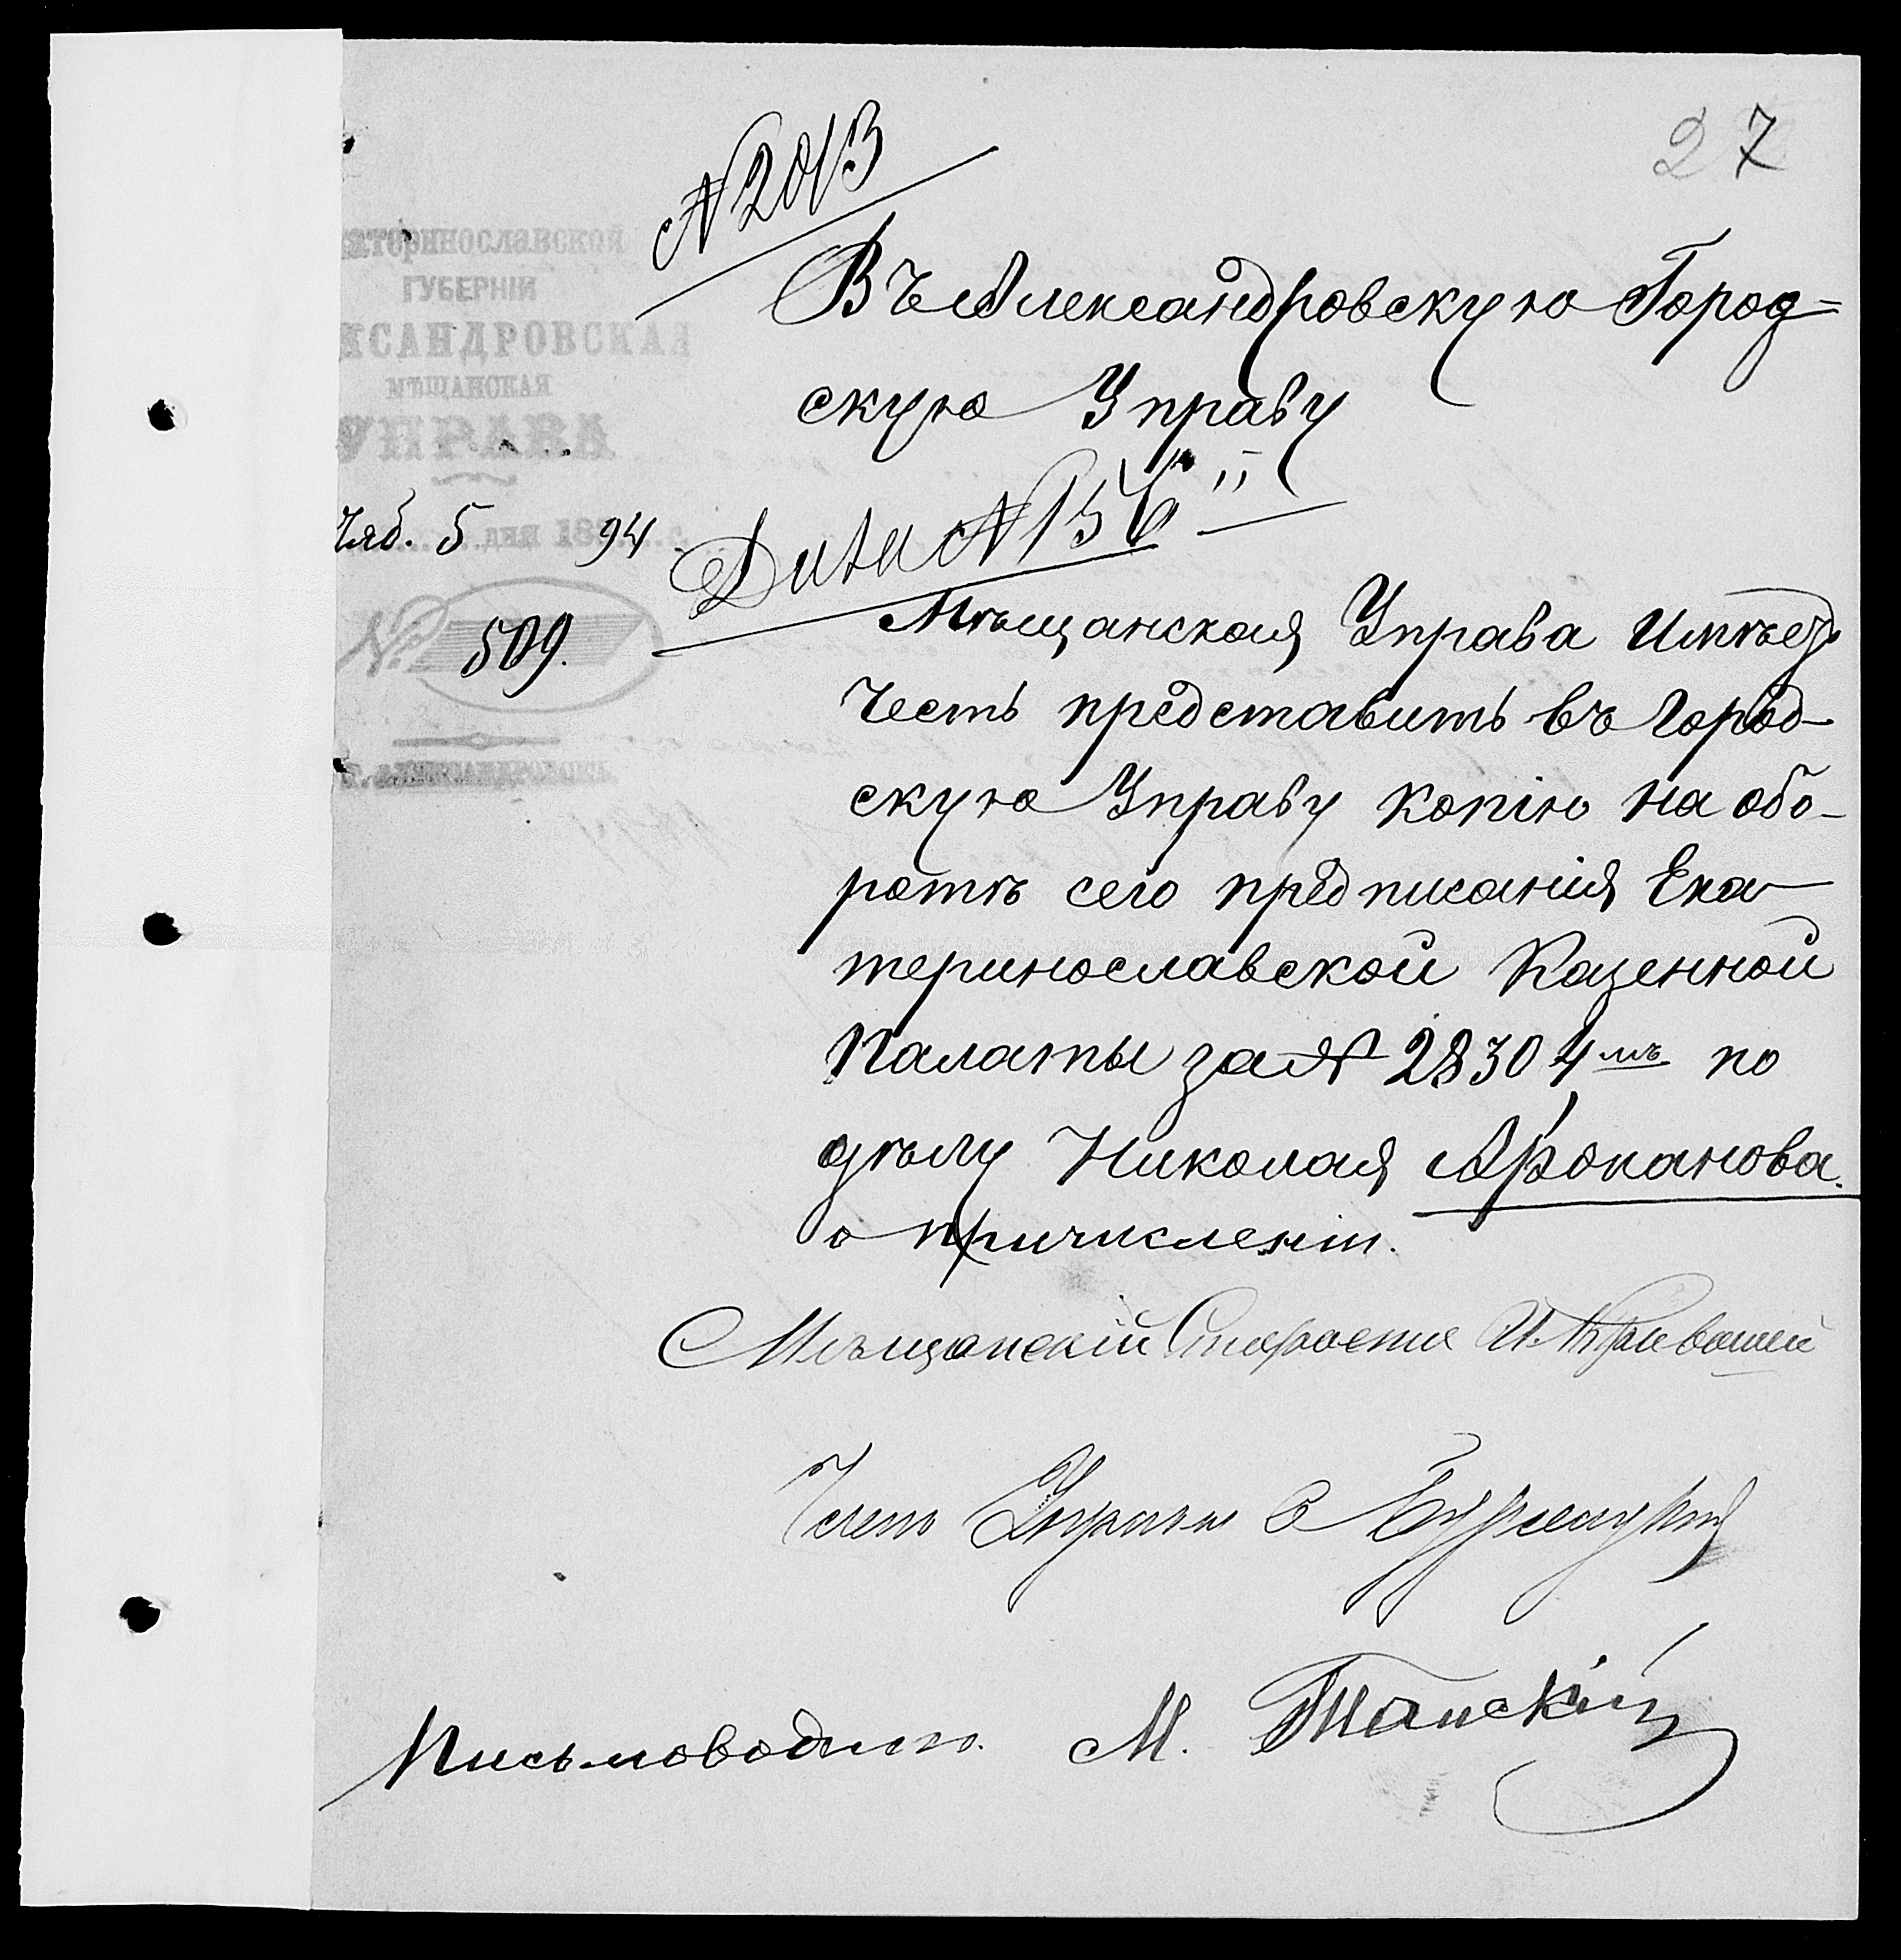 27
№ 2013
Екатеринославской
ГУБЕРНІИ
АЛЕКСАНДРОВСКАЯ
МѢЩАНСКАЯ
УПРАВА
5 дня 1894 г.
№ 509.
Г. АЛЕКСАНДРОВСКЪ.
Въ Александровскую Город=
скую Управу
№ 156
Мѣщанская Управа имѣетъ
честь представить въ Город-
скую Управу копію на обо-
ротѣ сего предписанія Ека-
теринославской Казенной
Палаты за № 28304мъ по
дѣлу Николая
о причисленіи.
Мѣщанскій Староста И.
Членъ Управы
Письмоводит. М.